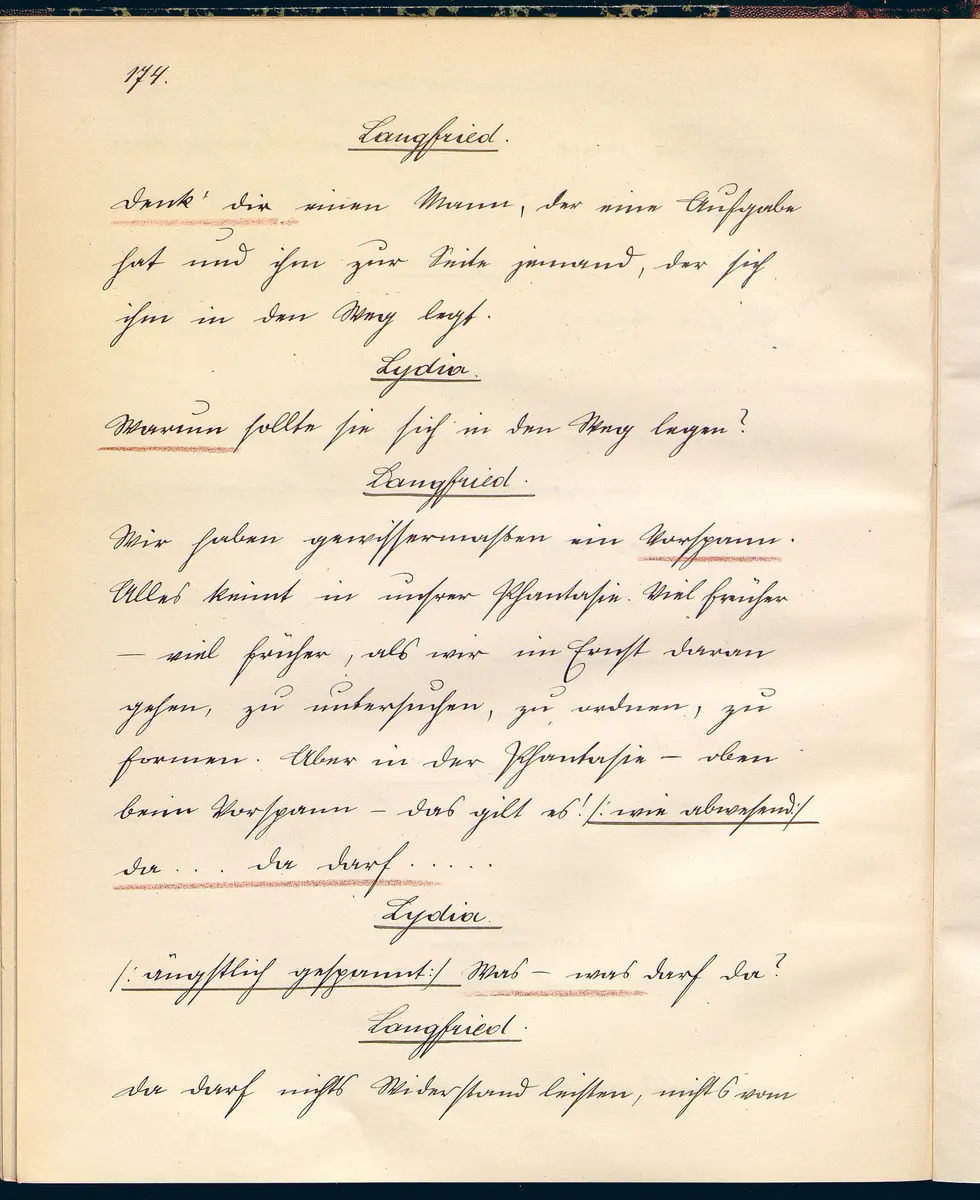 174.
Langfried.
Denk' dir einen Mann, der eine Aufgabe
hat und ihm zur Seite jemand, der sich
ihm in den Weg legt.
Lydia.
Warum sollte sie sich in den Weg legen?
Langfried.
Wir haben gewissermaßen ein Vorspann.
Alles keimt in unsrer Phantasie. Viel früher
— viel früher, als wir im Ernst daran
gehen, zu untersuchen, zu ordnen, zu
formen. Aber in der Phantasie – oben
beim Vorspann – das gilt es! /: wie abwesend :/
da . . . da darf . . . . .
Lydia.
/: ängstlich gespannt :/ Was – was darf da?
Langfried.
Da darf nichts Widerstand leisten, nichts vom